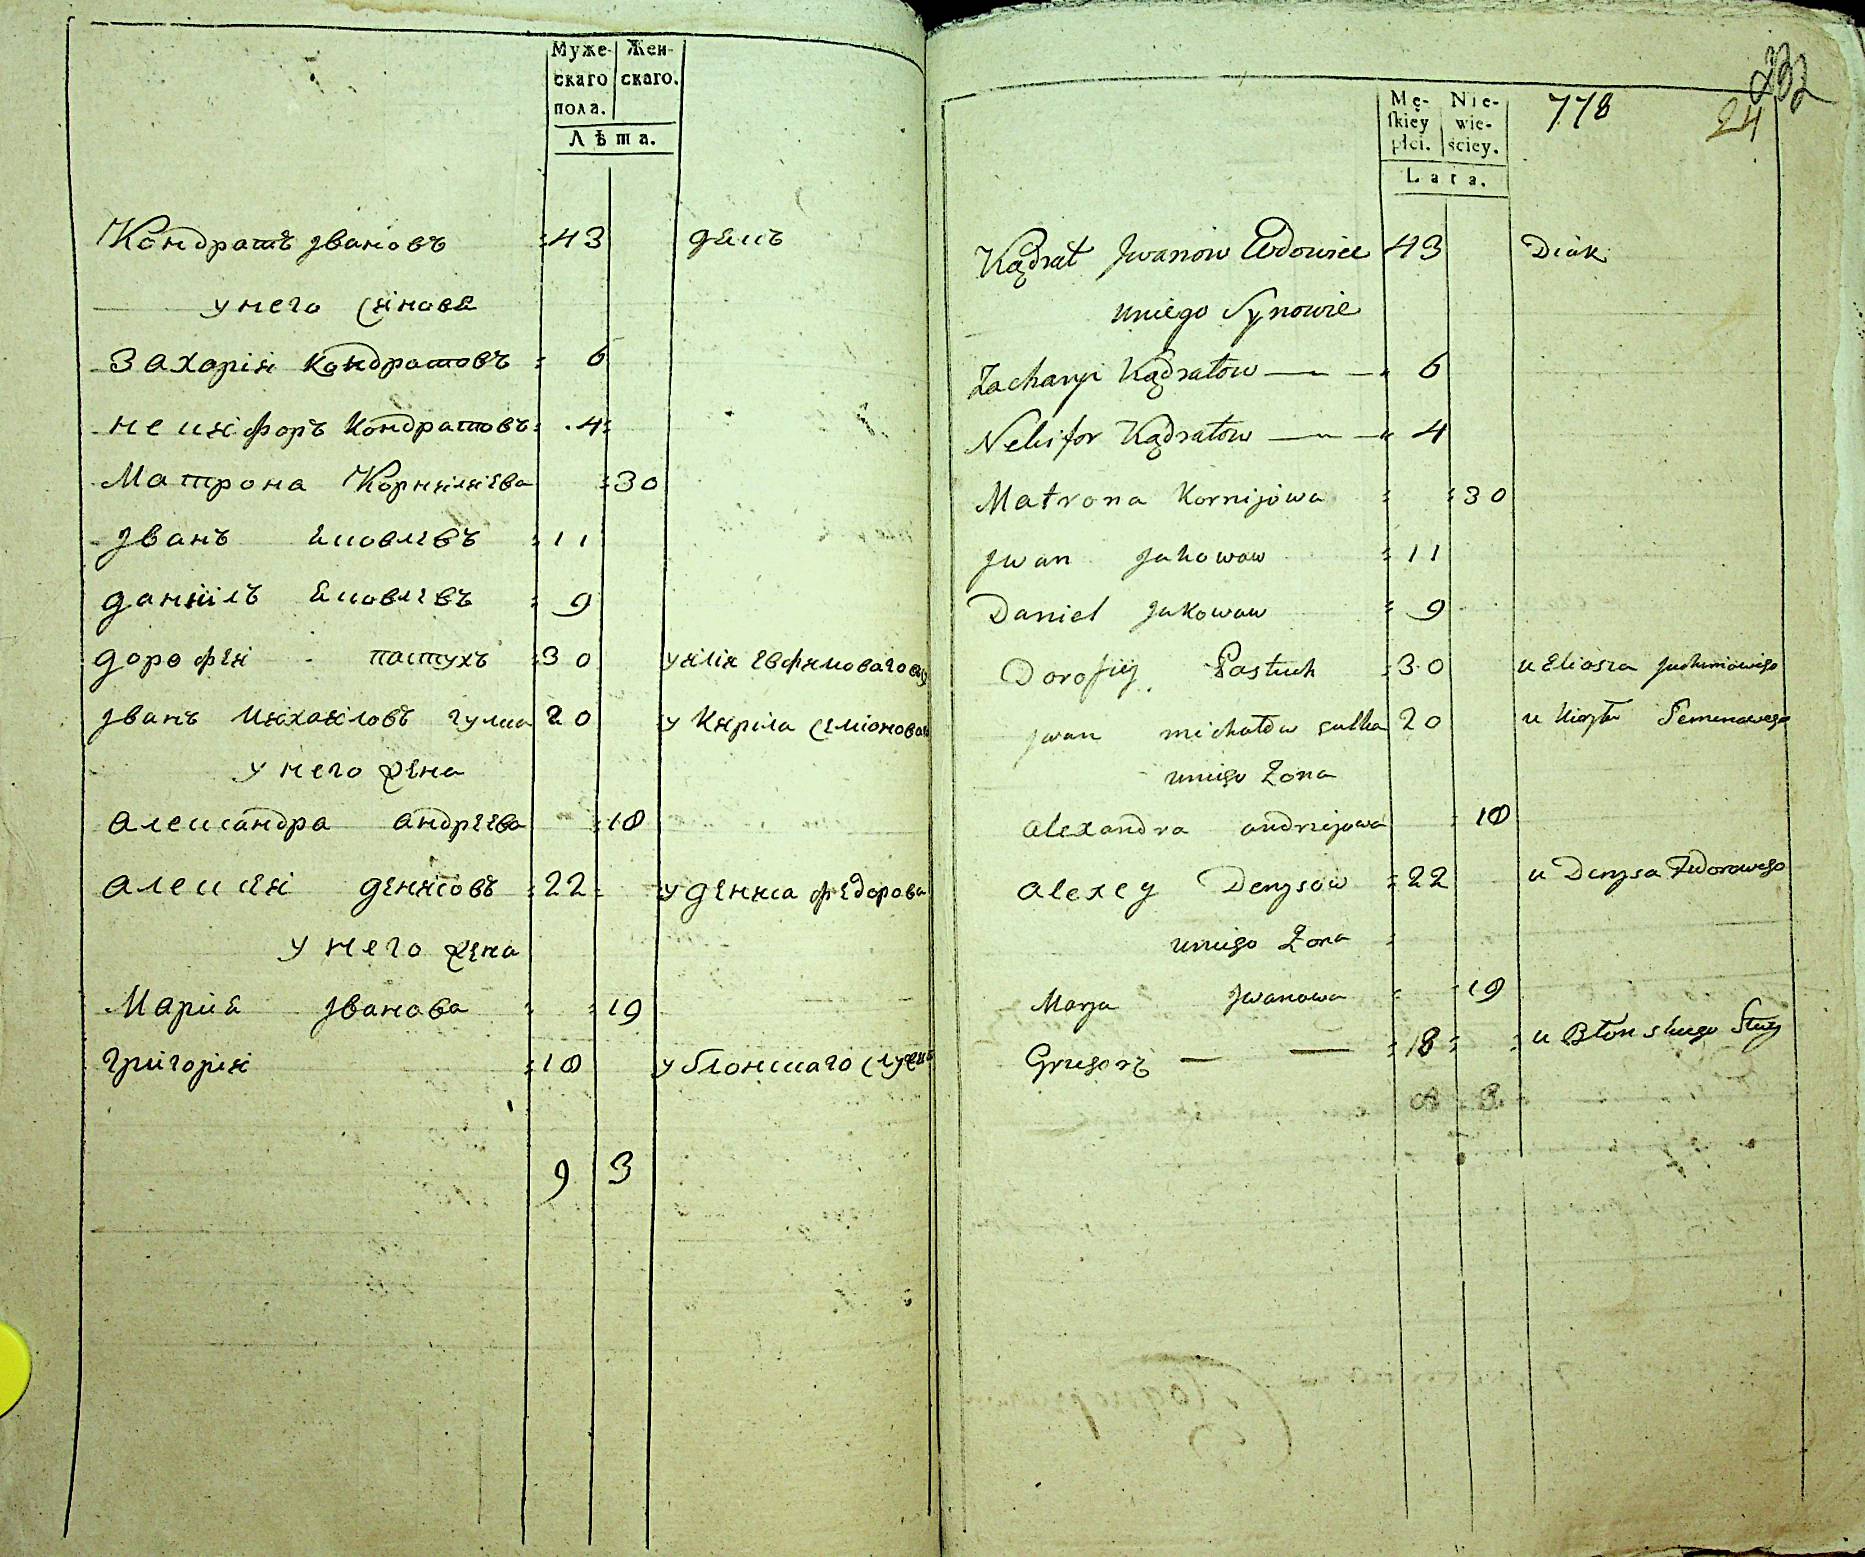 Муже- Жен-
скаго скаго.
пола.
Лѣта.
Кондратъ Ивановъ 43 дякъ
у него синовя
Захарій Кондратовъ 6
Никифоръ Кондратовъ 4
Матрона Корнилиева 30
Иванъ Яковлевъ 11
Даниилъ Яковлевъ 9
Дорофей пастухъ 30 у Иліи Евфимоваго
Иванъ Михайловъ гулка 20 у Кирила Семіонова
у него жена
Александра Андреева 18
Алексей Денисовъ 22 у Дениса Федорова
у него жена
Мария Иванова 19
Григорий 18 у Блонскаго
9 3
778
232
24
Mę- Nie-
skiey wie-
płci. ściey.
Lata.
Kądrat Jwanow Wdowiec 43 Diak
uniego Synowie
Zacharyi Kądratow 6
Nekifor Kądratow 4
Matrona Kornijowa 30
Jwan Jakowow 11
Daniel Jakowow 9
Dorofiey Pastuch 30 u Eliasza Juchimowigo
Jwan michałow gulka 20 u Kiryła Semenowego
uniego Żona
Alexandra andrzejowa 18
Alexey Denysow 22 u Denysa Fedorowego
uniego Żona
Marja Jwanowa 19
Grzegorz 18 u Błonskiego Służy
9 3